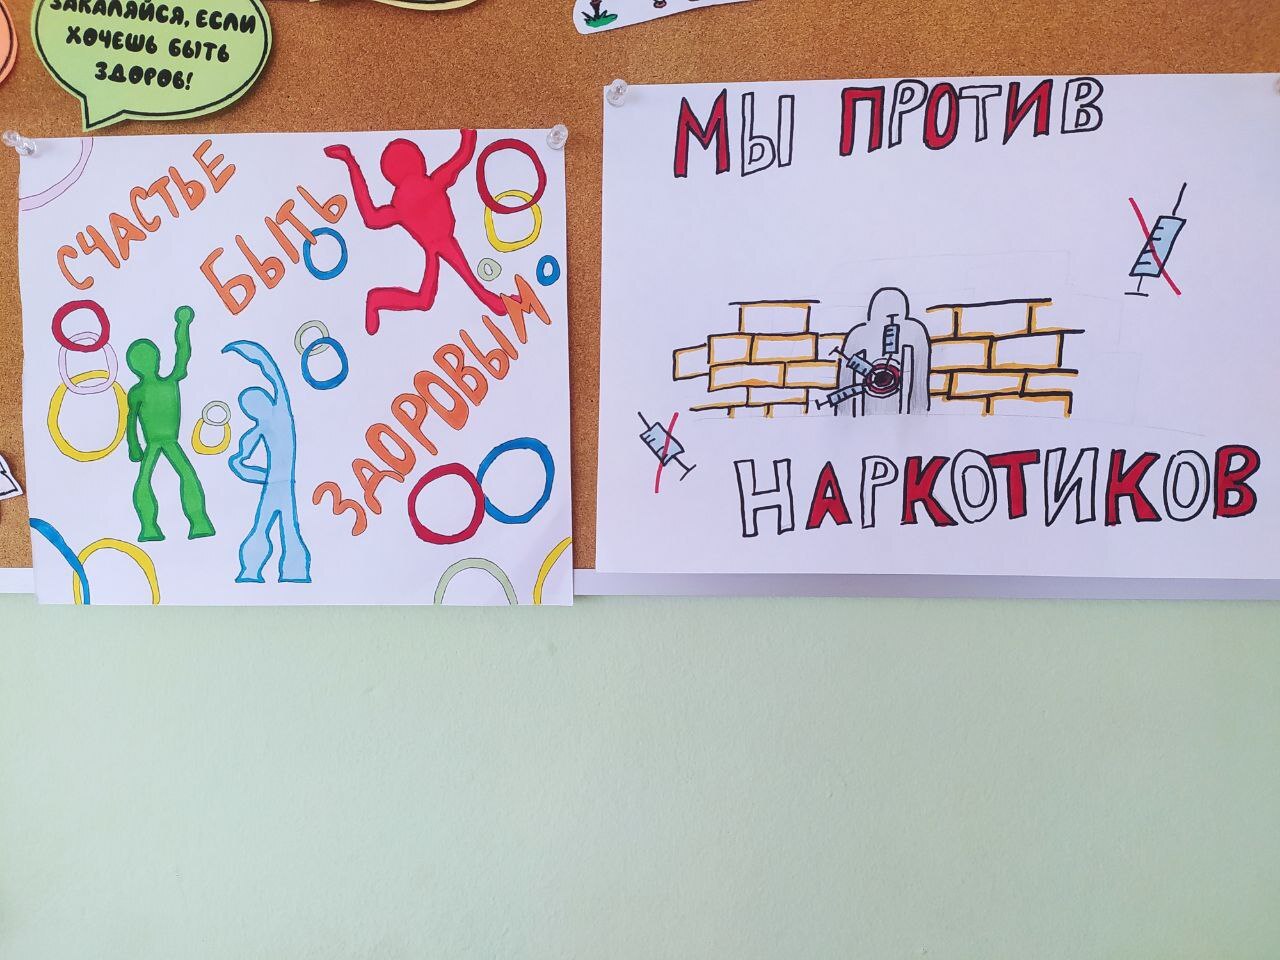 ЗАКАЛЯЙСЯ, ЕСЛИ
ХОЧЕШЬ БЫТЬ
ЗДОРОВ!
СЧАСТЬЕ
БЫТЬ
ЗДОРОВЫМ
МЫ ПРОТИВ
НАРКОТИКОВ